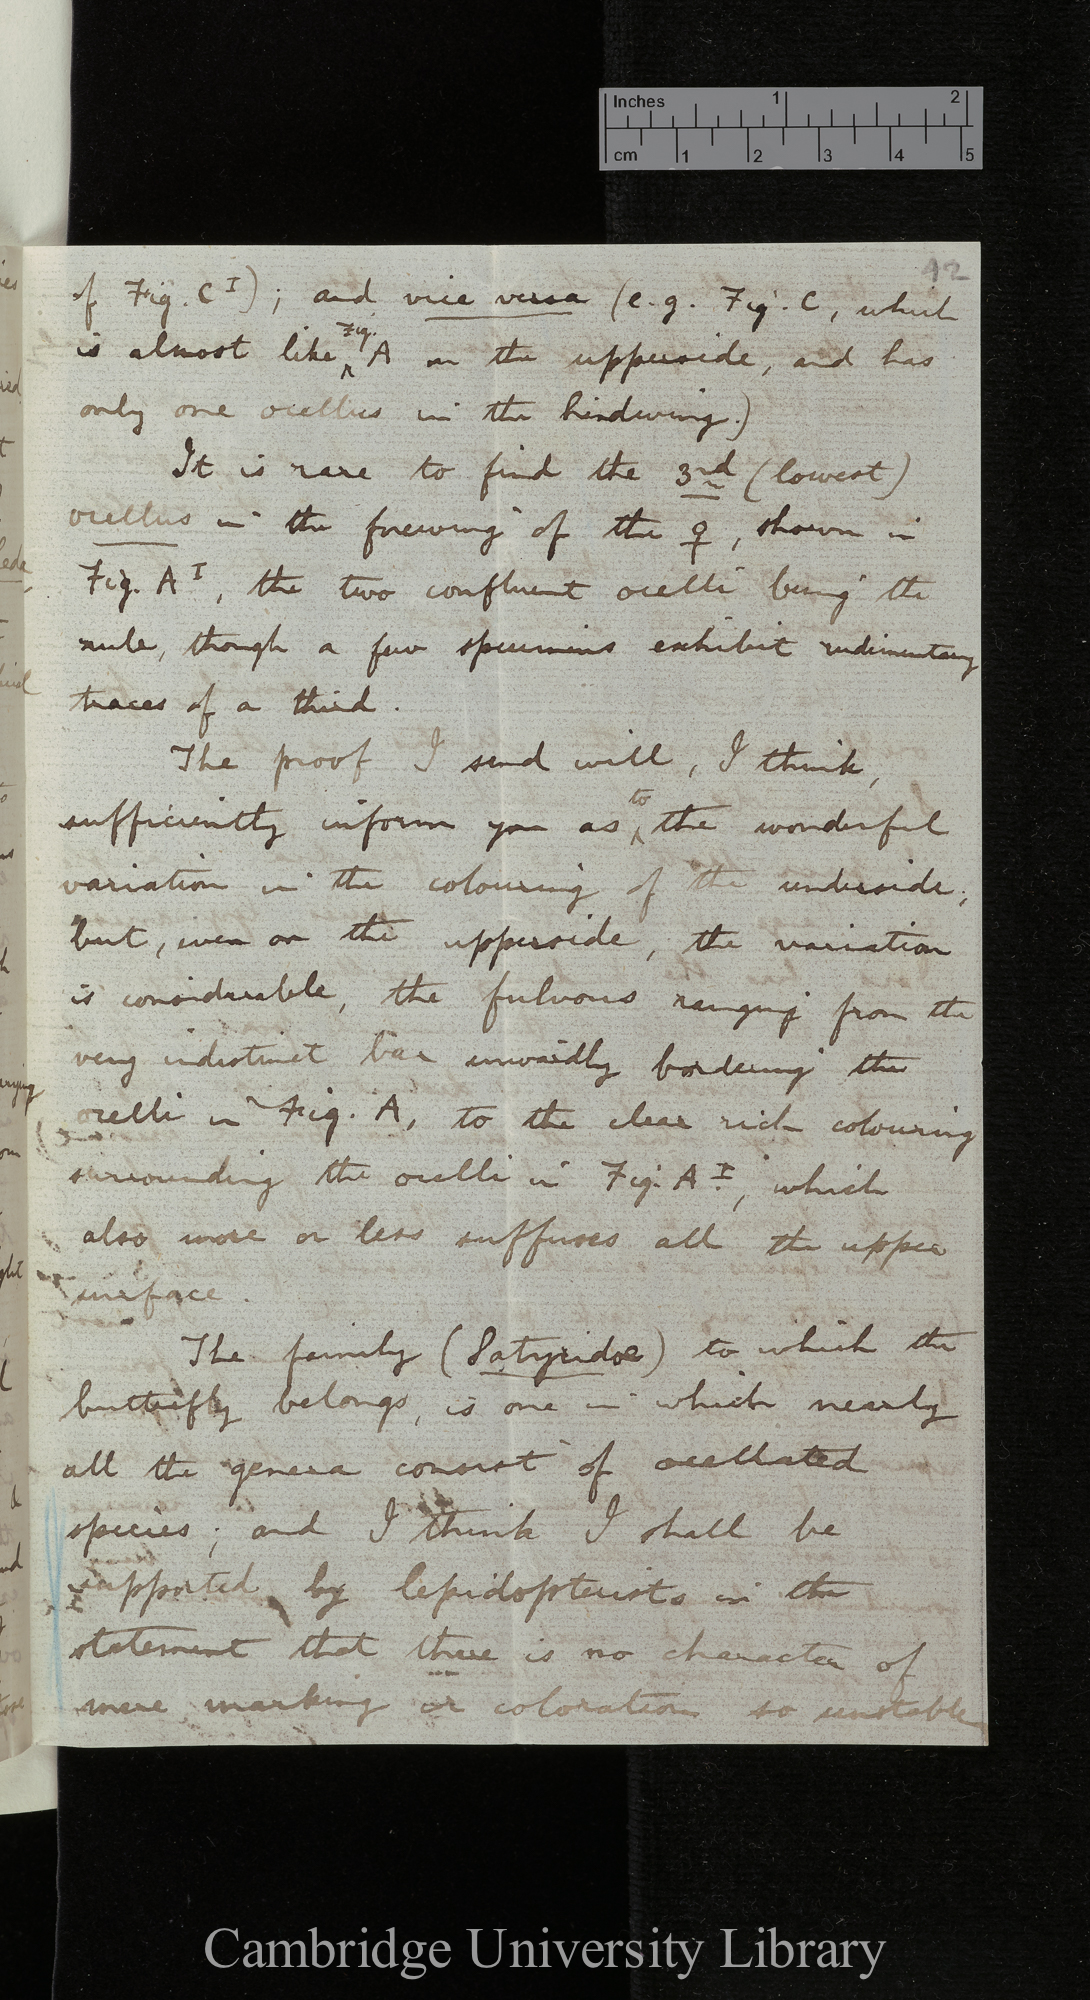 Inches 1 2
cm 1 2 3 4 5
42
of Fig. C I); and vice versa (e.g. Fig. C, which
is almost like Fig. A on the upperside, and has
only one ocellus in the hindwing.)
It is rare to find the 3rd (lowest)
ocellus in the forewing of the ♀, shown in
Fig. A I, the two confluent ocelli being the
rule, though a few specimens exhibit rudimentary
traces of a third.
The proof I send will, I think,
sufficiently inform you as to the wonderful
variation in the colouring of the underside;
but, even on the upperside, the variation
is considerable, the fulvous ranging from the
very indistinct bar inwardly bordering the
ocelli in Fig. A, to the clear rich colouring
surrounding the ocelli in Fig. A I, which
also more or less suffuses all the upper
surface.
The family (Satyridae) to which the
butterfly belongs, is one in which nearly
all the genera consist of ocellated
species; and I think I shall be
supported by lepidopterists in the
statement that there is no character of
mere marking or coloration so unstable
Cambridge University Library